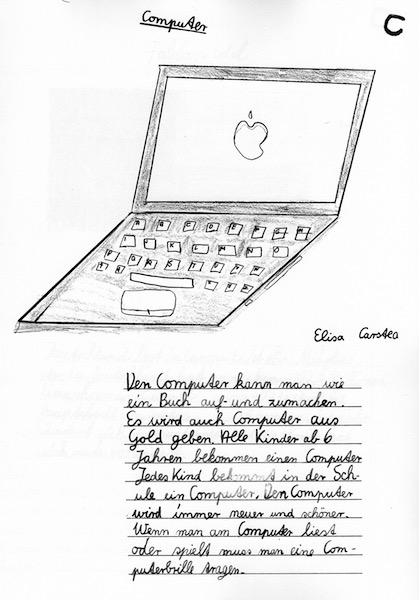 Computer
C
A B C D E F G H
I J K L M N O
P Q R S T U V W
X Y Z
Elisa Carstea
Den Computer kann man wie
ein Buch auf- und zumachen.
Es wird auch Computer aus
Gold geben. Alle Kinder ab 6
Jahren bekommen einen Computer
Jedes Kind bekommt in der Sch-
ule ein Computer. Den Computer
wird immer neuer und schöner.
Wenn man am Computer liest
oder spielt muss man eine Com-
puterbrille tragen.